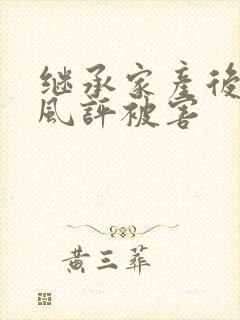 继承家産後
風評被害
黄三葬